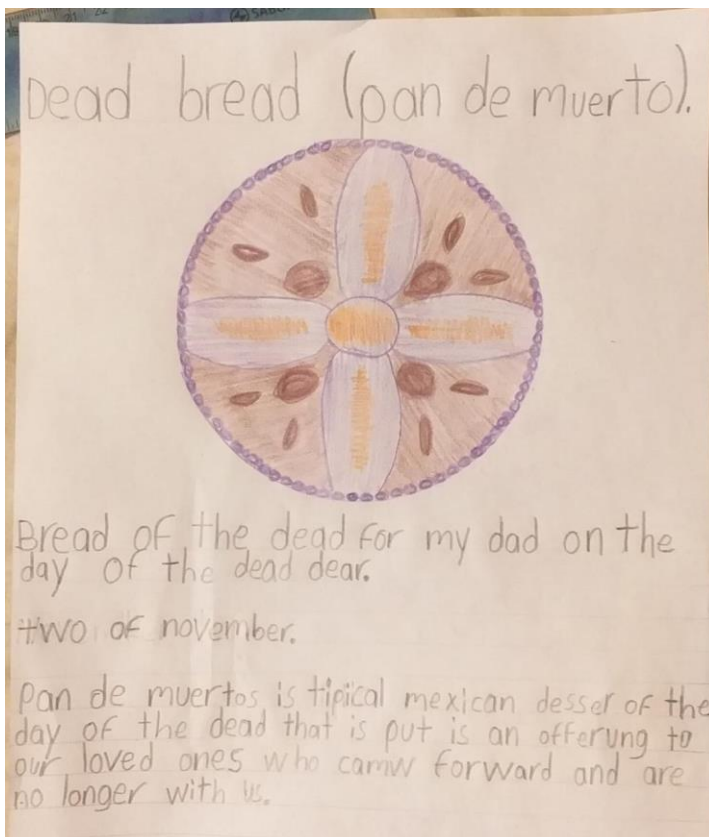 Dead bread (pan de muerto).
Bread of the dead for my dad on the
day of the dead dear.
two of november.
Pan de muertos is tipical mexican desser of the
day of the dead that is put is an offerung to
our loved ones who camw forward and are
no longer with us.